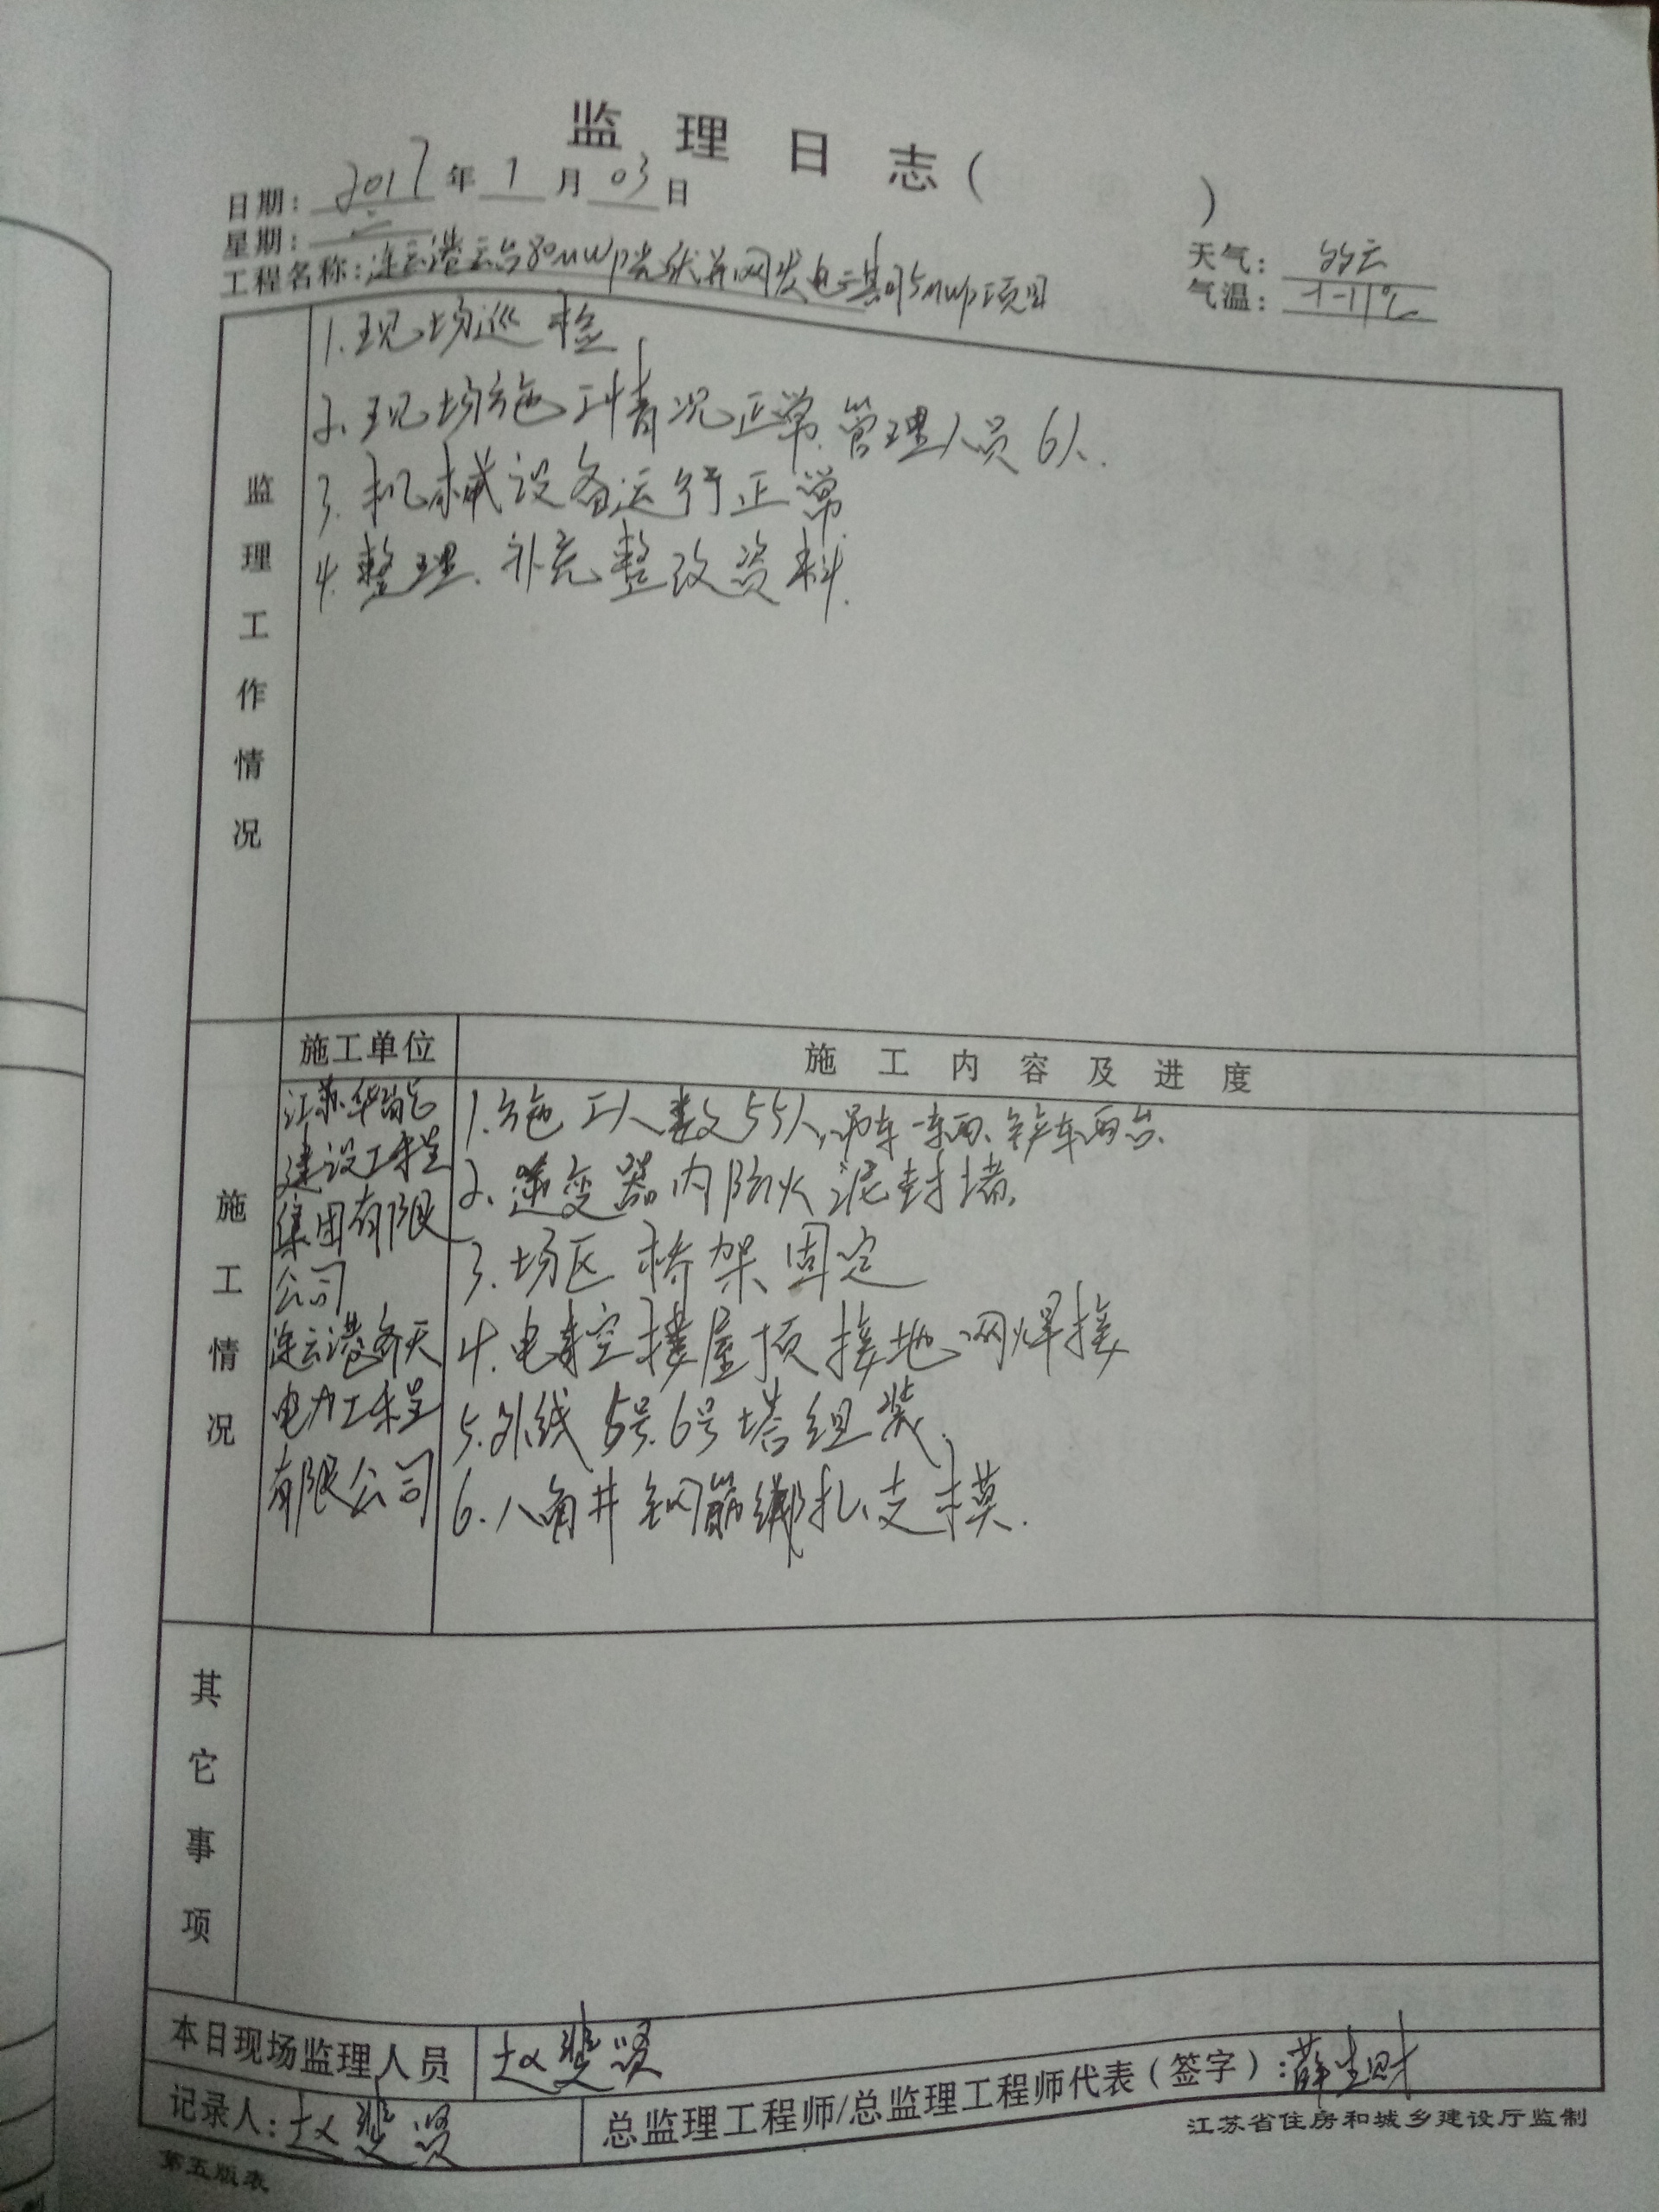 监理日志(　　　)
日期: 2017 年 1 月 03 日
星期: 二
天气: 多云
工程名称: 连云港云台80MWp光伏并网发电二期75MWp项目
气温: 1-11℃
监理工作情况
1.现场巡检
2.现场施工情况正常.管理人员6人.
3.机械设备运行正常
4.整理.补充整改资料.
施工情况
施工单位
施工内容及进度
江苏华能
建设工程
集团有限
公司
连云港
电力工程
有限公司
1.施工人数55人,吊车一辆、铲车两台.
2.逆变器内防火泥封堵.
3.场区桥架固定
4.电控楼屋顶接地网焊接
5.外线5号.6号塔组装.
6.八角井钢筋绑扎、支模.
其它事项
本日现场监理人员 赵斐贤
记录人: 赵斐贤
总监理工程师/总监理工程师代表(签字): 薛生财
第五版表
江苏省住房和城乡建设厅监制